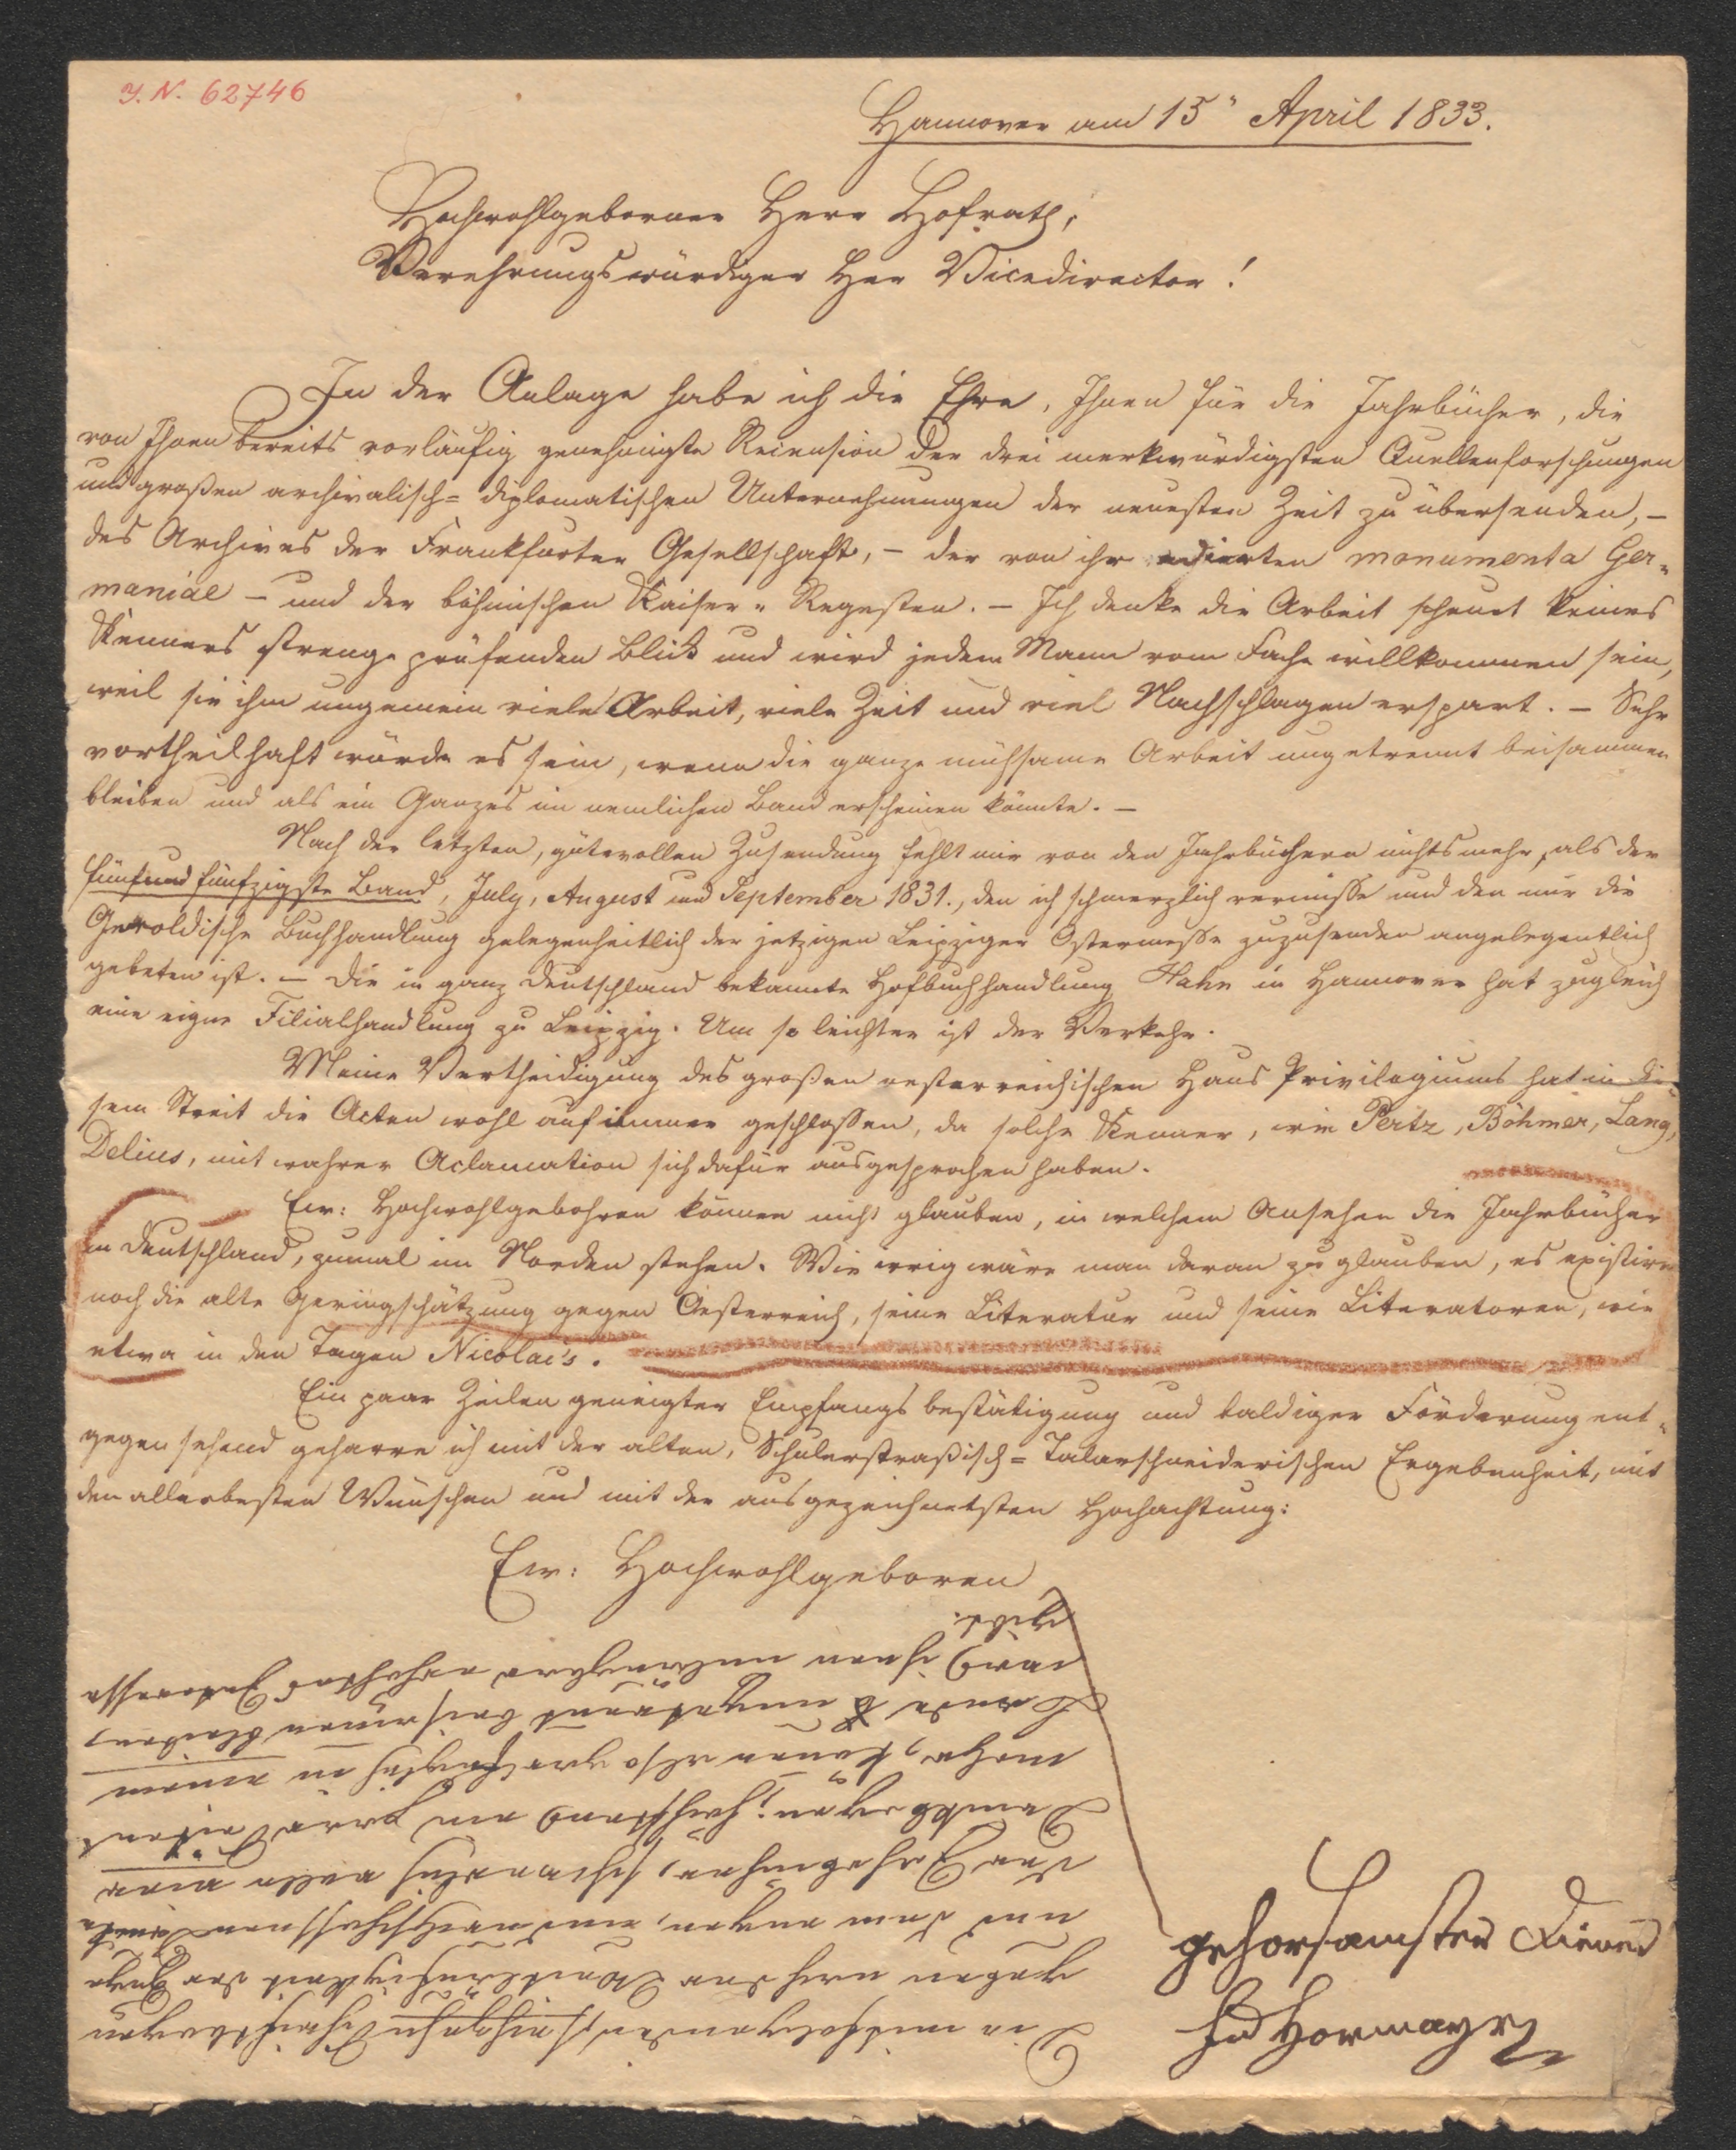 J. N. 62746
Hannover am 15" April 1833.
Hochwohlgeborner Herr Hofrath,
Verehrungswürdiger Herr Vicedirector!
In der Anlage habe ich die Ehre, Ihnen für die Jahrbücher, die
von Ihnen bereits vorläufig genehmigte Recension der drei merkwürdigsten Quellenforschungen
und großen archivalisch= diplomatischen Unternehmungen der neuesten Zeit zu übersenden, –
des Archives der Frankfurter Gesellschaft, – der von ihr edierten monumenta Ger=
maniae – und der böhmischen Kaiser= Regesten. – Ich denke die Arbeit scheuet keines
Kenners strenge prüfenden Blick und wird jedem Mann vom Fache willkommen sein,
weil sie ihm ungemein viele Arbeit, viele Zeit und viel Nachschlagen erspart. – Sehr
vortheilhaft würde es sein, wenn die ganze mühsame Arbeit ungetrennt beisammen
bleiben und als ein Ganzes im nemlichen Band erscheinen könnte. –
Nach der letzten, gütevollen Zusendung fehlt mir von den Jahrbüchern nichts mehr, als der
fünfund fünfzigste Band, July, August und September 1831., den ich schmerzlich vermisse und den mir die
Geroldische Buchhandlung gelegenheitlich der jetzigen Leipziger Ostermesse zuzusenden angelegentlich
gebeten ist. – Die in ganz Deutschland bekannte Hofbuchhandlung Hahn in Hannover hat zugleich
eine eigne Filialhandlung zu Leipzig. Um so leichter ist der Verkehr.
Meine Vertheidigung des großen oesterreichischen Haus Privilegiums hat in die=
sem Streit die Acten wohl auf immer geschlossen, da solche Kenner, wie Pertz, Böhmer, Lang,
Delius, mit wahrer Aclamation sich dafür ausgesprochen haben.
Eur: Hochwohlgebohren können nicht glauben, in welchem Ansehen die Jahrbücher
in Deutschland, zumal im Norden stehen. Wie irrig wäre man daran zu glauben, es existire
noch die alte Geringschätzung gegen Oesterreich, seine Literatur und seine Literatoren, wie
etwa in den Tagen Nicolai's.
Ein paar Zeilen geneigter Empfangs bestätigung und baldiger Förderung ent=
gegen sehend geharre ich mit der alten, Schulerstraßisch= Talarschneiderischen Ergebenheit, mit
den allerbesten Wünschen und mit der ausgezeichnetsten Hochachtung:
Eur: Hochwohlgeboren
gehorsamster Diener
Hormayr
Die mitfolgenden
gegen der Wichtigkeit der
und dem engen,
der
ein
mehr, können also in einem
Bande ungetrennt beisammen bleiben,
was ihnen ungleich erhöhtes Interesse
gibt.